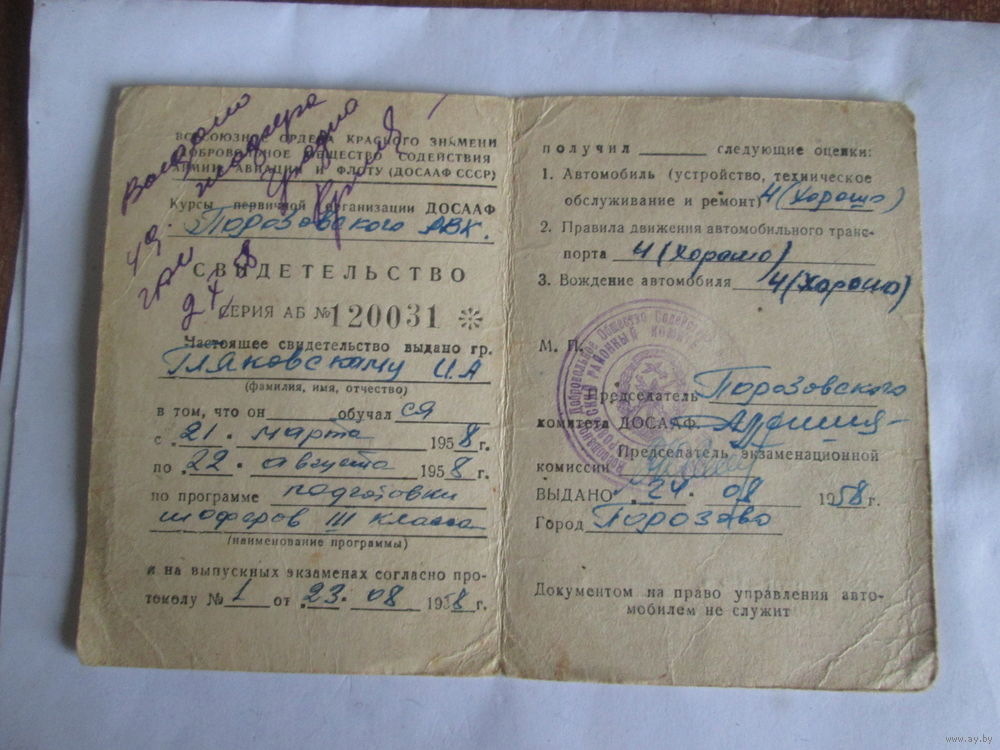 ВСЕСОЮЗНОЕ ОРДЕНА КРАСНОГО ЗНАМЕНИ
ДОБРОВОЛЬНОЕ ОБЩЕСТВО СОДЕЙСТВИЯ
АРМИИ АВИАЦИИ И ФЛОТУ (ДОСААФ СССР)
Курсы первичной организации ДОСААФ
Порозовского АВК.
СВИДЕТЕЛЬСТВО
СЕРИЯ АБ № 120031
Настоящее свидетельство выдано гр.
Гляковскому И.А
(фамилия, имя, отчество)
в том, что он обучался
с 21. марта 1958 г.
по 22. августа 1958 г.
по программе подготовки
шоферов III класса
(наименование программы)
и на выпускных экзаменах согласно про-
токолу № 1 от 23. 08 1958 г.
получил следующие оценки:
1. Автомобиль (устройство, техническое
обслуживание и ремонт) 4 (хорошо)
2. Правила движения автомобильного транс-
порта 4 (хорошо)
3. Вождение автомобиля 4 (хорошо)
М. П.
Председатель Порозовского
комитета ДОСААФ
Председатель экзаменационной
комиссии
ВЫДАНО 24. 08 1958 г.
Город Порозово
Документом на право управления авто-
мобилем не служит
www.ay.by